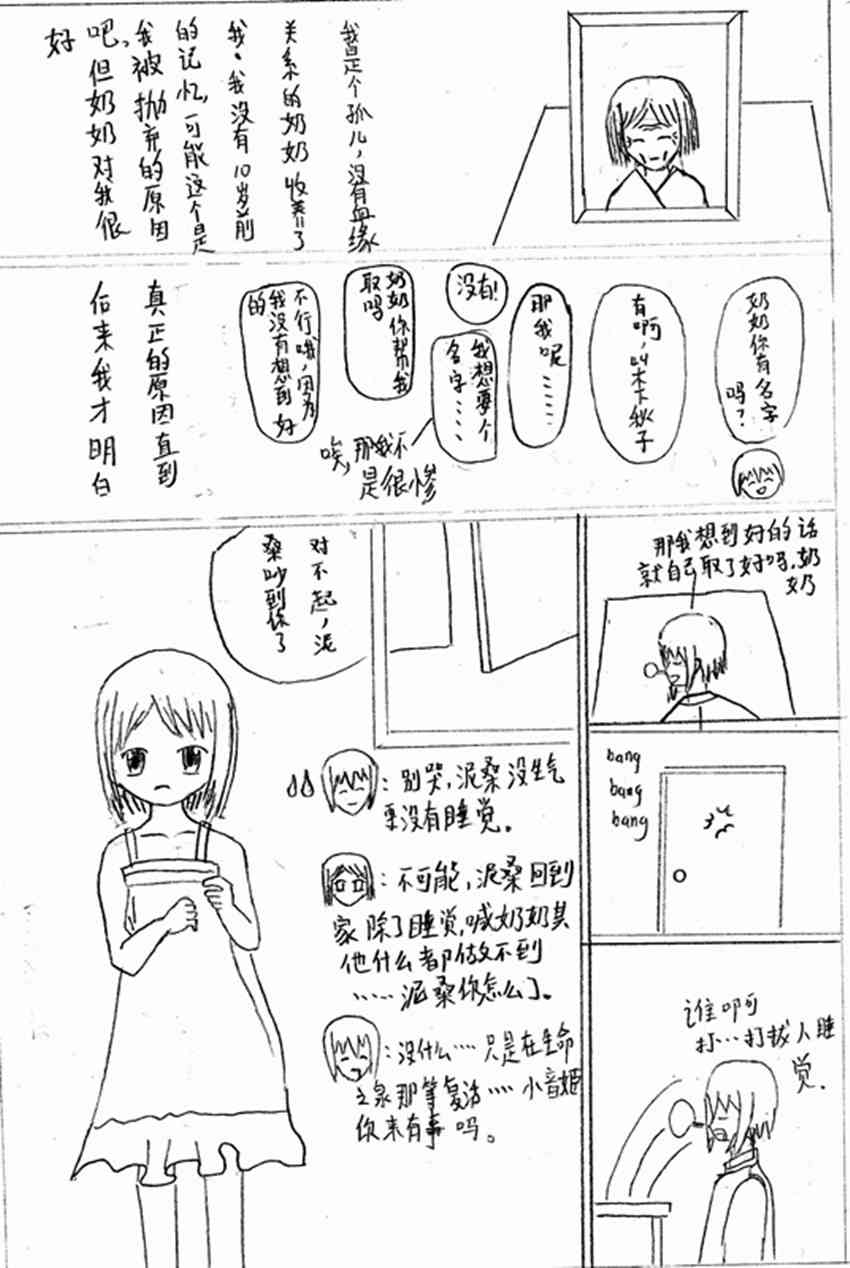 我是个孤儿，没有血缘
关系的奶奶收养了
我。我没有10岁前
的记忆，可能这个是
我被抛弃的原因
吧，但奶奶对我很
好
奶奶你有名字
吗？
有啊，叫木下秋子
那我呢……
没有！
我想要个
名字……
唉，那我不
是很惨
奶奶你帮我
取吗
不行哦，因为
我没有想到好
的
真正的原因直到
后来我才明白
那我想到好的话
就自己取了好吗，奶
奶
bang
bang
bang
谁啊
打…打扰人睡
觉．
对不起，泥
桑吵到你了
：别哭，泥桑没生气
更没有睡觉。
：不可能，泥桑回到
家除了睡觉，喊奶奶其
他什么都做不到
……泥桑你怎么了。
：没什么…只是在生命
之泉那等复活…小音姬
你来有事吗。